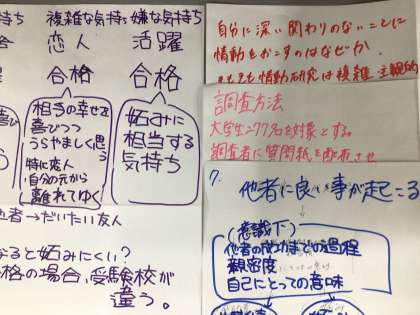 複雑な気持ち 嫌な気持ち
恋人 活躍
合格 合格
相手の幸せを
喜びつつ
うらやましく思う
特に恋人
自分の元から
離れてゆく
妬みに
相当する
気持ち
者→だいたい友人
なると妬みにくい?
格の場合、受験校が
違う。
自分に深い関わりのないことに
情動をおこすのはなぜか.
情動研究は複雑 主観的
調査方法
大学生277名を対象とする。
調査者に質問紙を配布させ
7.
他者に良い事が起こる
(意識下)
他者の成功までの過程
親密度
自己にとっての意味